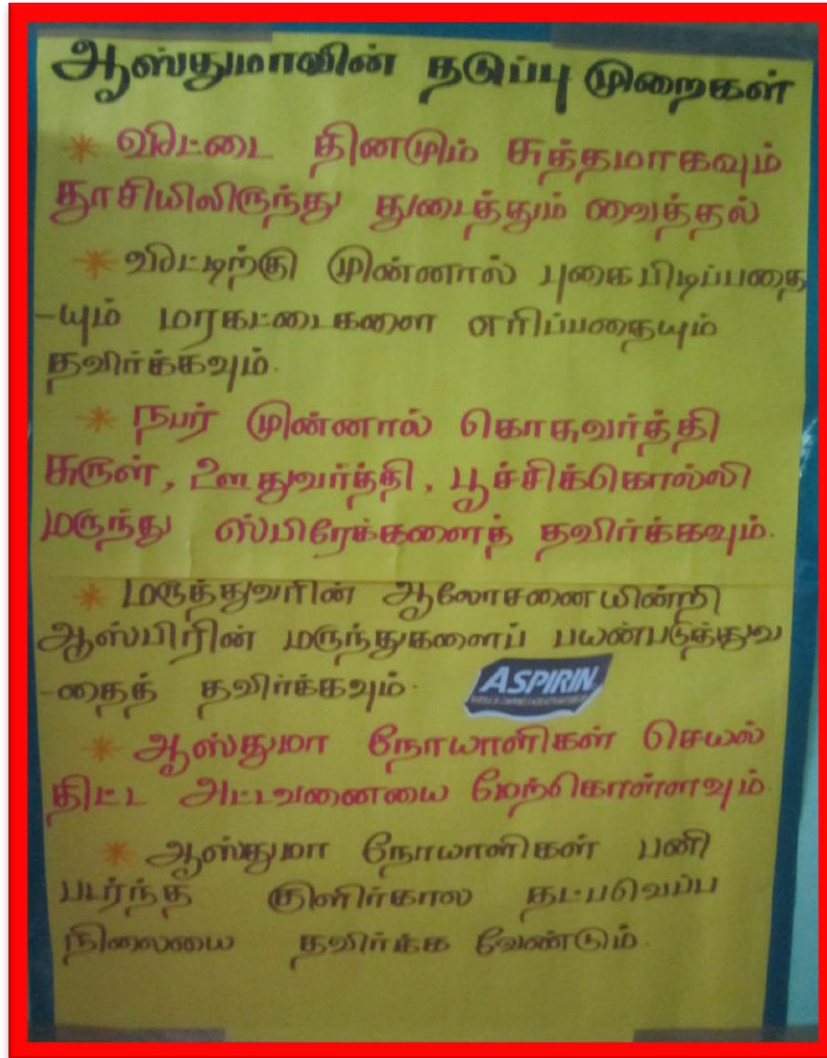 ஆஸ்துமாவின் தடுப்பு முறைகள்
* வீட்டை தினமும் சுத்தமாகவும்
தூசியிலிருந்து துடைத்தும் வைத்தல்
* வீட்டிற்கு முன்னால் புகைபிடிப்பதை
-யும் மரகட்டைகளை எரிப்பதையும்
தவிர்க்கவும்.
* நபர் முன்னால் கொசுவர்த்தி
சுருள், ஊதுவர்த்தி, பூச்சிக்கொல்லி
மருந்து ஸ்பிரேக்களைத் தவிர்க்கவும்.
* மருத்துவரின் ஆலோசனையின்றி
ஆஸ்பிரின் மருந்துகளைப் பயன்படுத்துவ
-தைத் தவிர்க்கவும்.
ASPIRIN
* ஆஸ்துமா நோயாளிகள் செயல்
திட்ட அட்டவணையை மேற்கொள்ளவும்.
* ஆஸ்துமா நோயாளிகள் பனி
படர்ந்த குளிர்கால தட்பவெப்ப
நிலையை தவிர்க்க வேண்டும்.